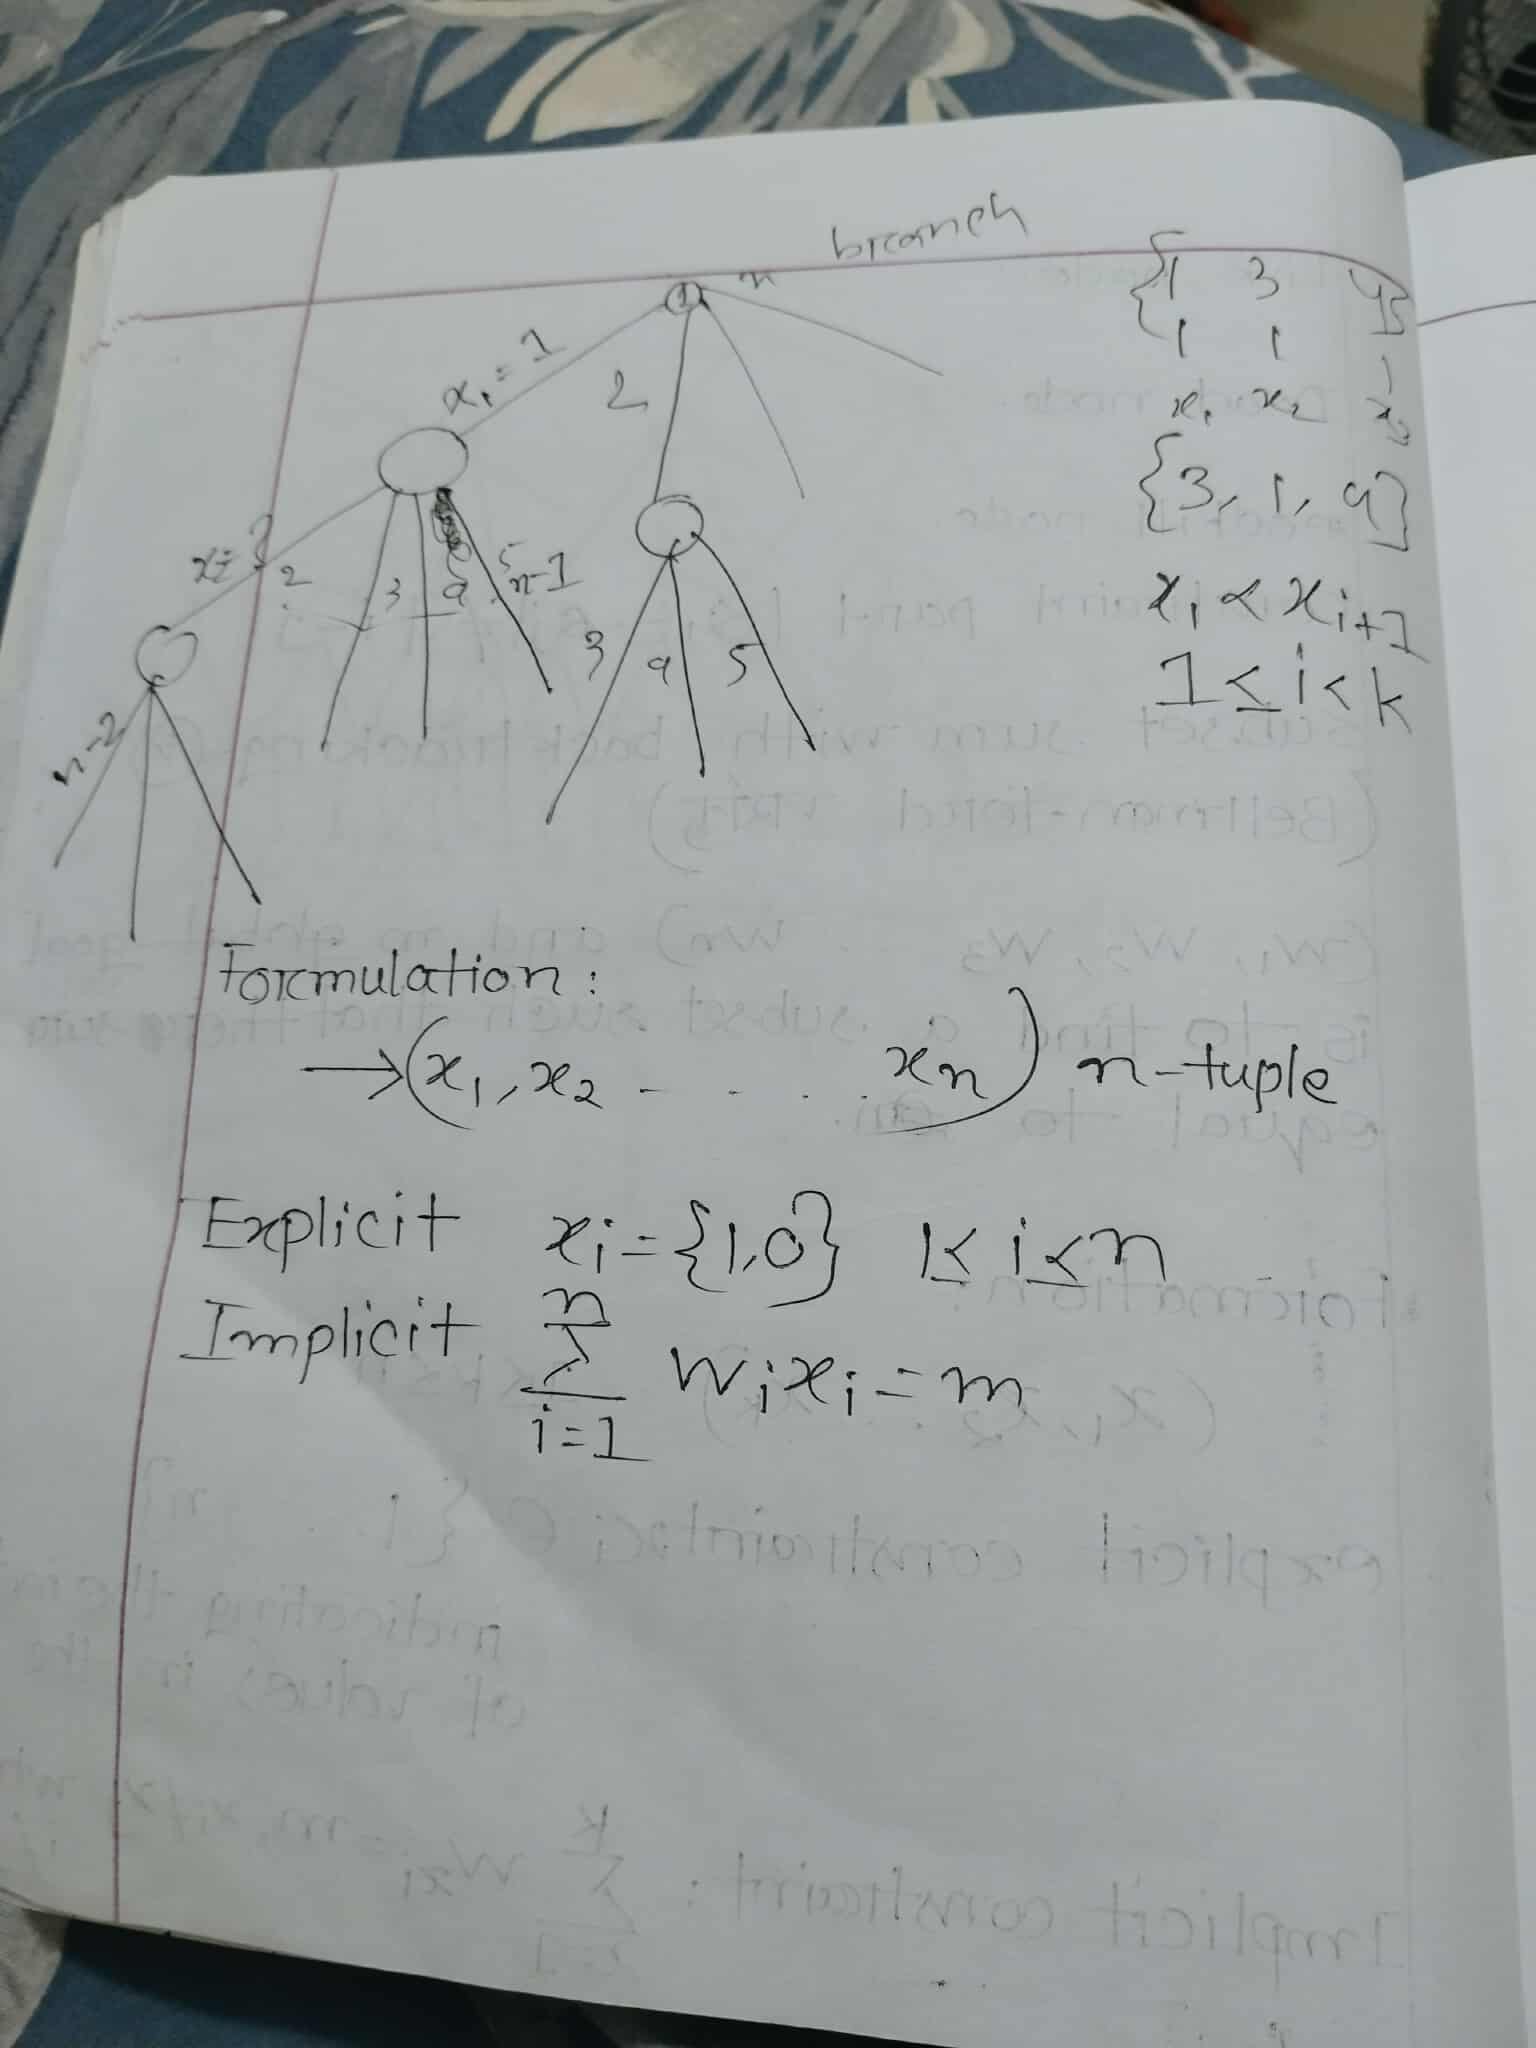 branch
n
1
x₁ = 1
2
x₂ = 2
3
4
5
n-1
3
4
5
n-2
{1 3 4}
1 1 1
x₁ x₂ x₃
{3, 1, 4}
xᵢ < xᵢ₊₁
1 ≤ i < k
Formulation:
→ (x₁, x₂ - . . . . xₙ) n-tuple
Explicit xᵢ = {1,0} 1 ≤ i ≤ n
Implicit ∑ⁿᵢ₌₁ wᵢxᵢ = m